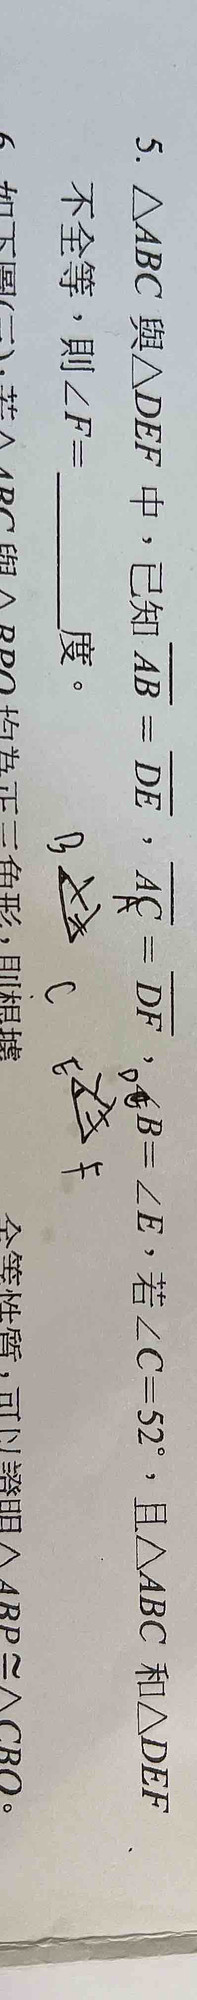 5. △ABC 與△DEF 中，已知 AB = DE，AC = DF，∠B=∠E，若∠C=52°，且△ABC 和△DEF
不全等，則∠F= ______ 度。
A
D
B
C
E
F
6. 如下圖(三)，若△ABC與△BPQ均為正三角形，則根據 全等性質，可以證明△ABP≅△CBQ。